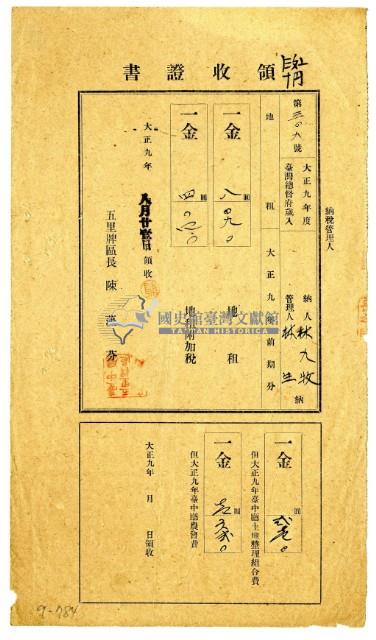 領收證書
納稅管理人
第三〇九號
大正九年度
臺灣總督府歲入
納人 林九牧 納
管理人 林生
地租
大正九年前期分
一金
圓
八〇九〇
地租
一金
圓
四〇四〇
地租附加稅
大正九年
八月廿
日
領收
五里牌區長 陳
芬
國史館臺灣文獻館
TAIWAN HISTORICA
一金
圓
但大正九年臺中廳土地整理組合費
一金
圓
但大正九年臺中廳農會費
大正九年 月 日領收
9-784